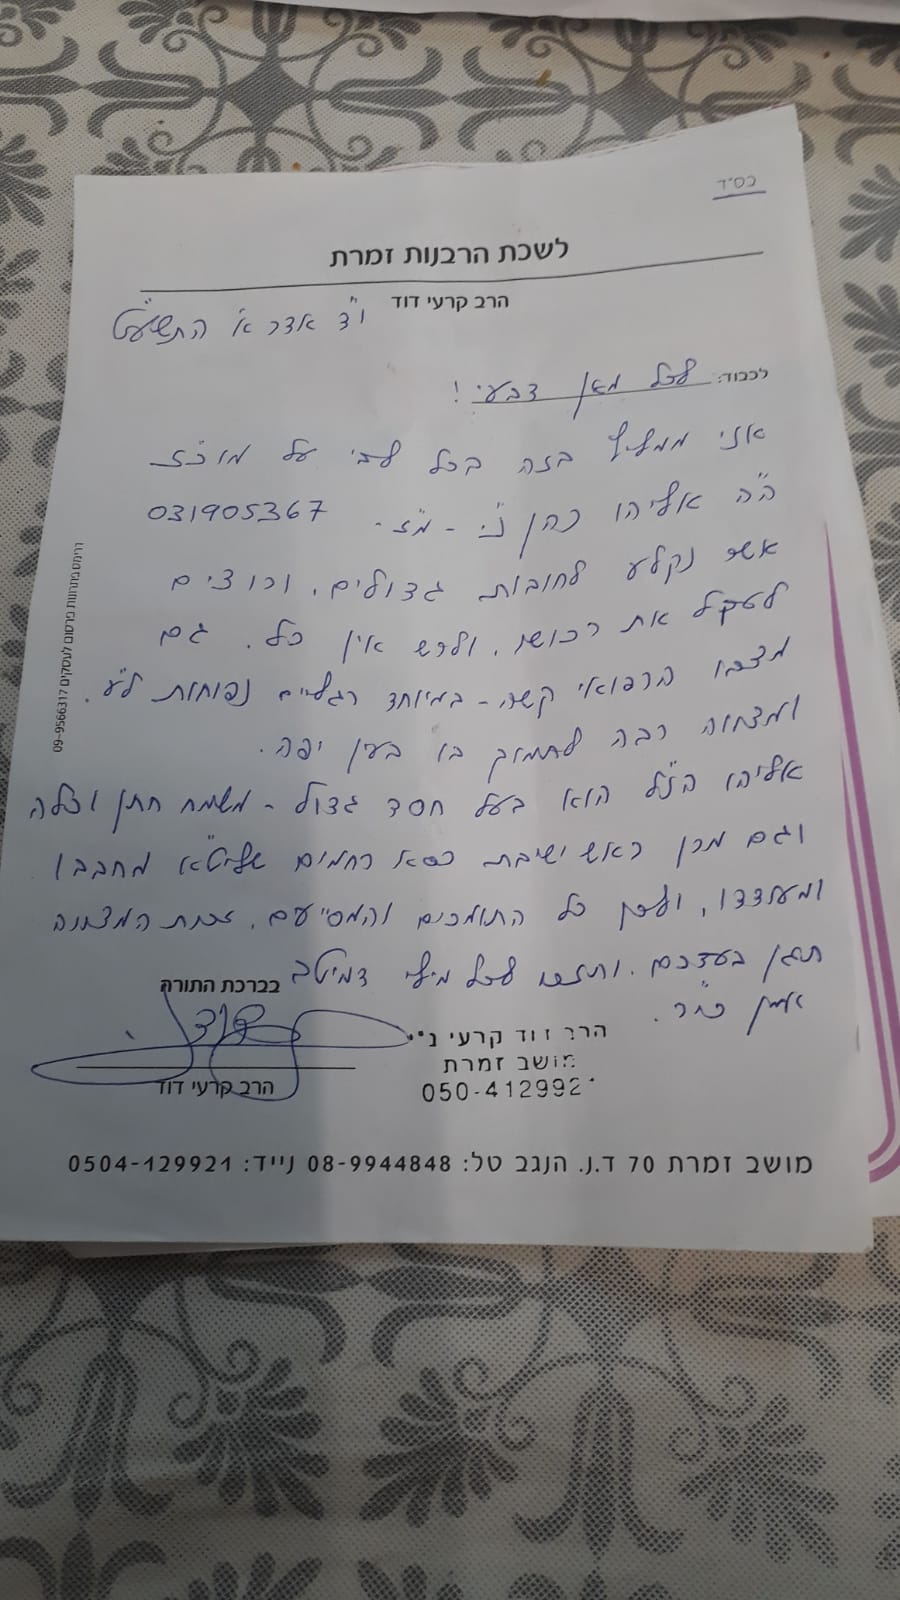 בס״ד
לשכת הרבנות זמרת
הרב קרעי דוד
י״ד אדר א׳ התשע״ט
לכבוד: לכל מאן דבעי!
אני ממליץ בזה בכל לבי על מוכ״ז
ה״ה אליהו כהן נ״י - מ״ז - 031905367
אשר נקלע לחובות גדולים, ורוצים
לעקל את רכושו, ולרש אין כל. גם
מצבו הרפואי קשה - במיוחד רגליים נפוחות ל״ע.
ומצווה רבה לתמוך בו בעין יפה.
אליהו הנ״ל הוא בעל חסד גדול - משמח חתן וכלה
וגם מרן ראש ישיבת כסא רחמים שליט״א מחבבו
ומעודדו, ולכן כל התומכים והמסייעים, זכות המצווה
תגן בעדכם, ותזכו לכל מילי דמיטב
אמן כי״ר.
בברכת התורה
הרב דוד קרעי נ״י
מושב זמרת
050-412992
הרב קרעי דוד
מושב זמרת 70 ד.נ. הנגב טל: 08-9944848 נייד: 0504-129921
דרימס פתרונות פרסום לעסקים 09-9566317